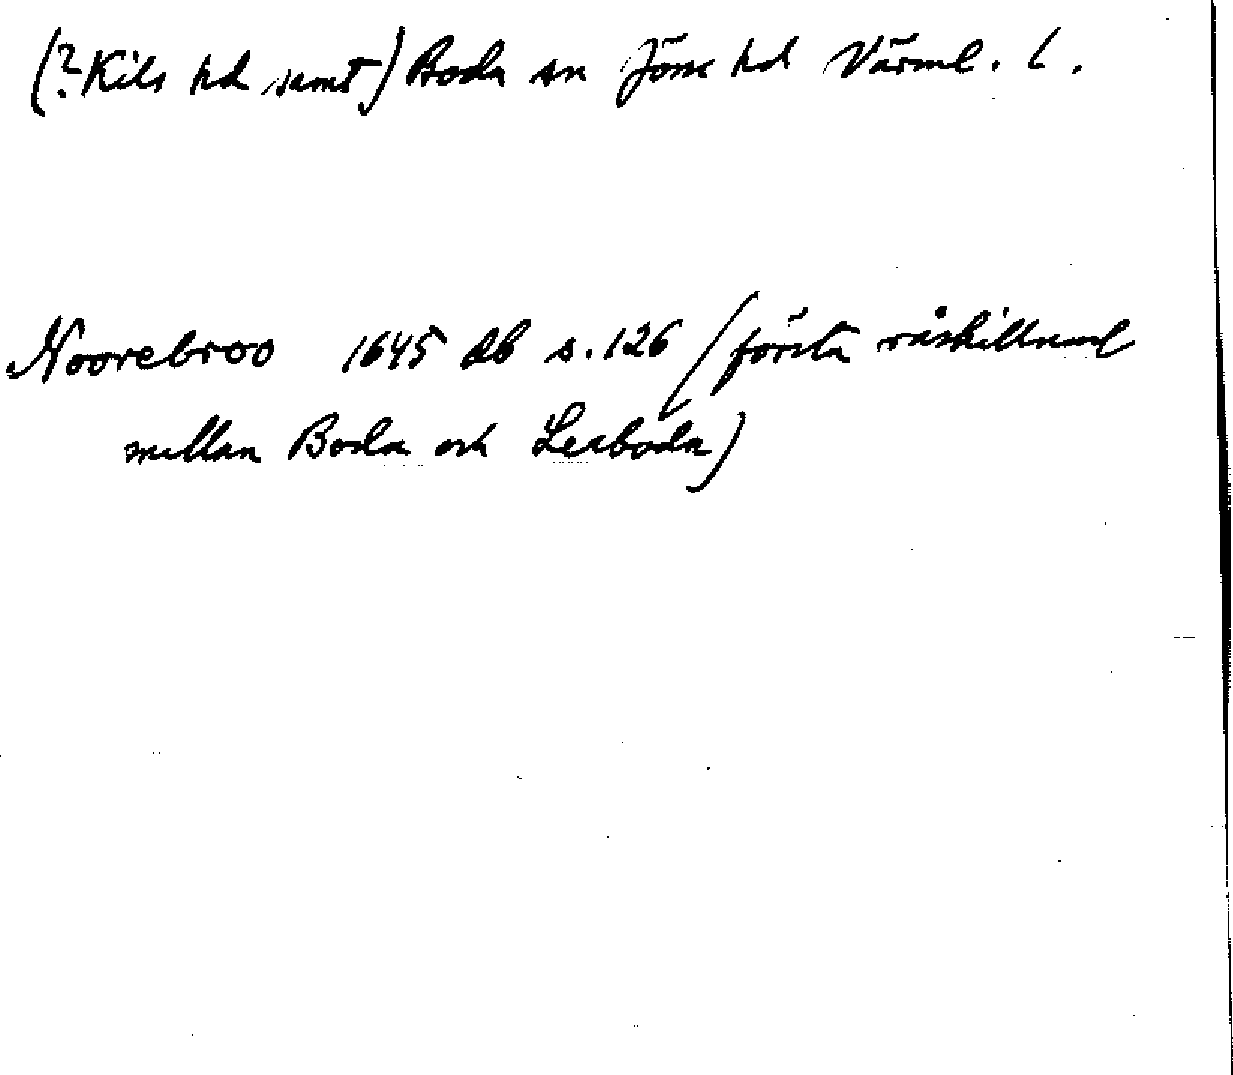 (? Kils hd samt) Boda sn Jöss hd Värml. l.
Noorebroo 1645 db s. 126 (första råskillnad
mellan Boda och Lerboda)